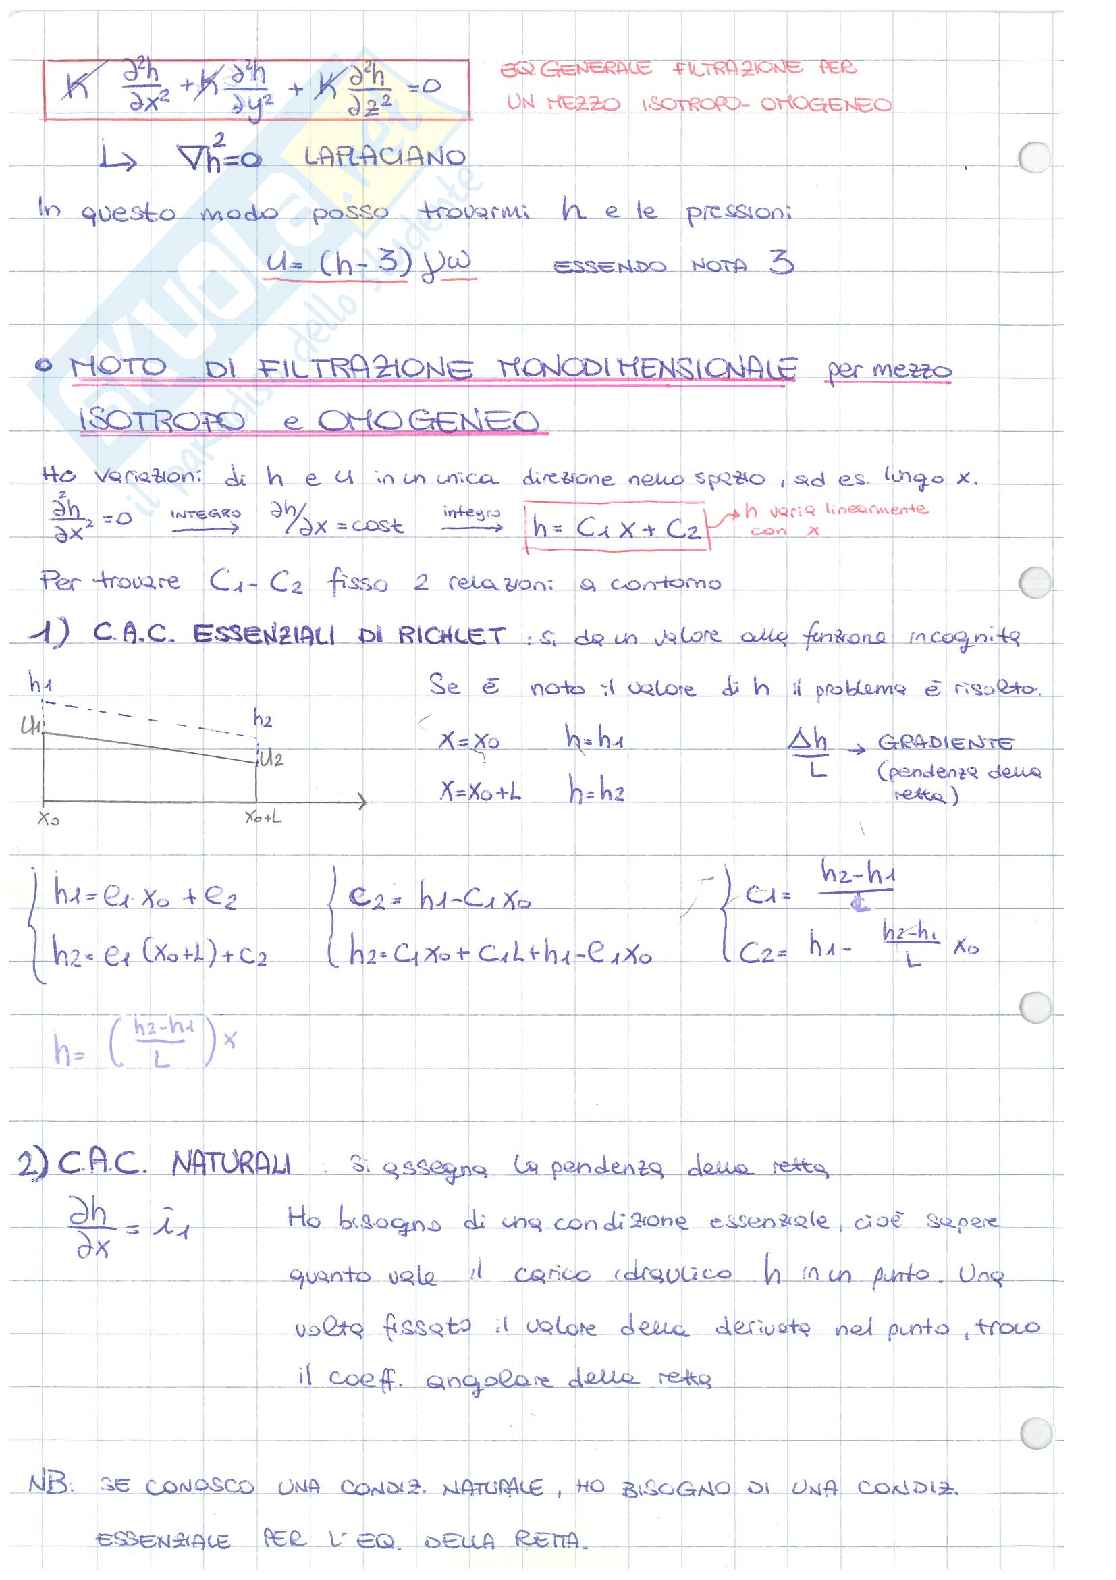 K ∂²h/∂x² + K ∂²h/∂y² + K ∂²h/∂z² = 0
EQ GENERALE FILTRAZIONE PER
UN MEZZO ISOTROPO-OMOGENEO
↳ ∇h²=0 LAPLACIANO
In questo modo posso trovarmi h e le pressioni
u = (h-3) γω ESSENDO NOTA 3
• MOTO DI FILTRAZIONE MONODIMENSIONALE per mezzo
ISOTROPO e OMOGENEO
Ho variazioni di h e u in un unica direzione nello spazio, ad es. lungo x.
∂²h/∂x² = 0 INTEGRO → ∂h/∂x = cost integro → h = C1 x + C2 → h varia linearmente
con x
Per trovare C1-C2 fisso 2 relazioni a contorno
1) C.A.C. ESSENZIALI DI RICHLET : si da un valore alla funzione incognita
h1
Se è noto il valore di h il problema è risolto.
U1
h2
U2
x0
x0+L
x=x0 h=h1
x=x0+L h=h2
Δh/L → GRADIENTE
(pendenza della
retta)
{ h1 = c1 x0 + c2
h2 = c1 (x0+L) + c2
{ c2 = h1-C1 x0
h2 = C1x0 + C1L + h1 - C1x0
{ C1 = (h2-h1)/L
C2 = h1 - (h2-h1)/L x0
h = ((h2-h1)/L) x
2) C.A.C. NATURALI : si assegna la pendenza della retta
∂h/∂x = i1
Ho bisogno di una condizione essenziale, cioè sapere
quanto vale il carico idraulico h in un punto. Una
volta fissato il valore della derivata nel punto, trovo
il coeff. angolare della retta
NB: SE CONOSCO UNA CONDIZ. NATURALE, HO BISOGNO DI UNA CONDIZ.
ESSENZIALE PER L'EQ. DELLA RETTA.
SKUOLA.net
il paradiso dello studente